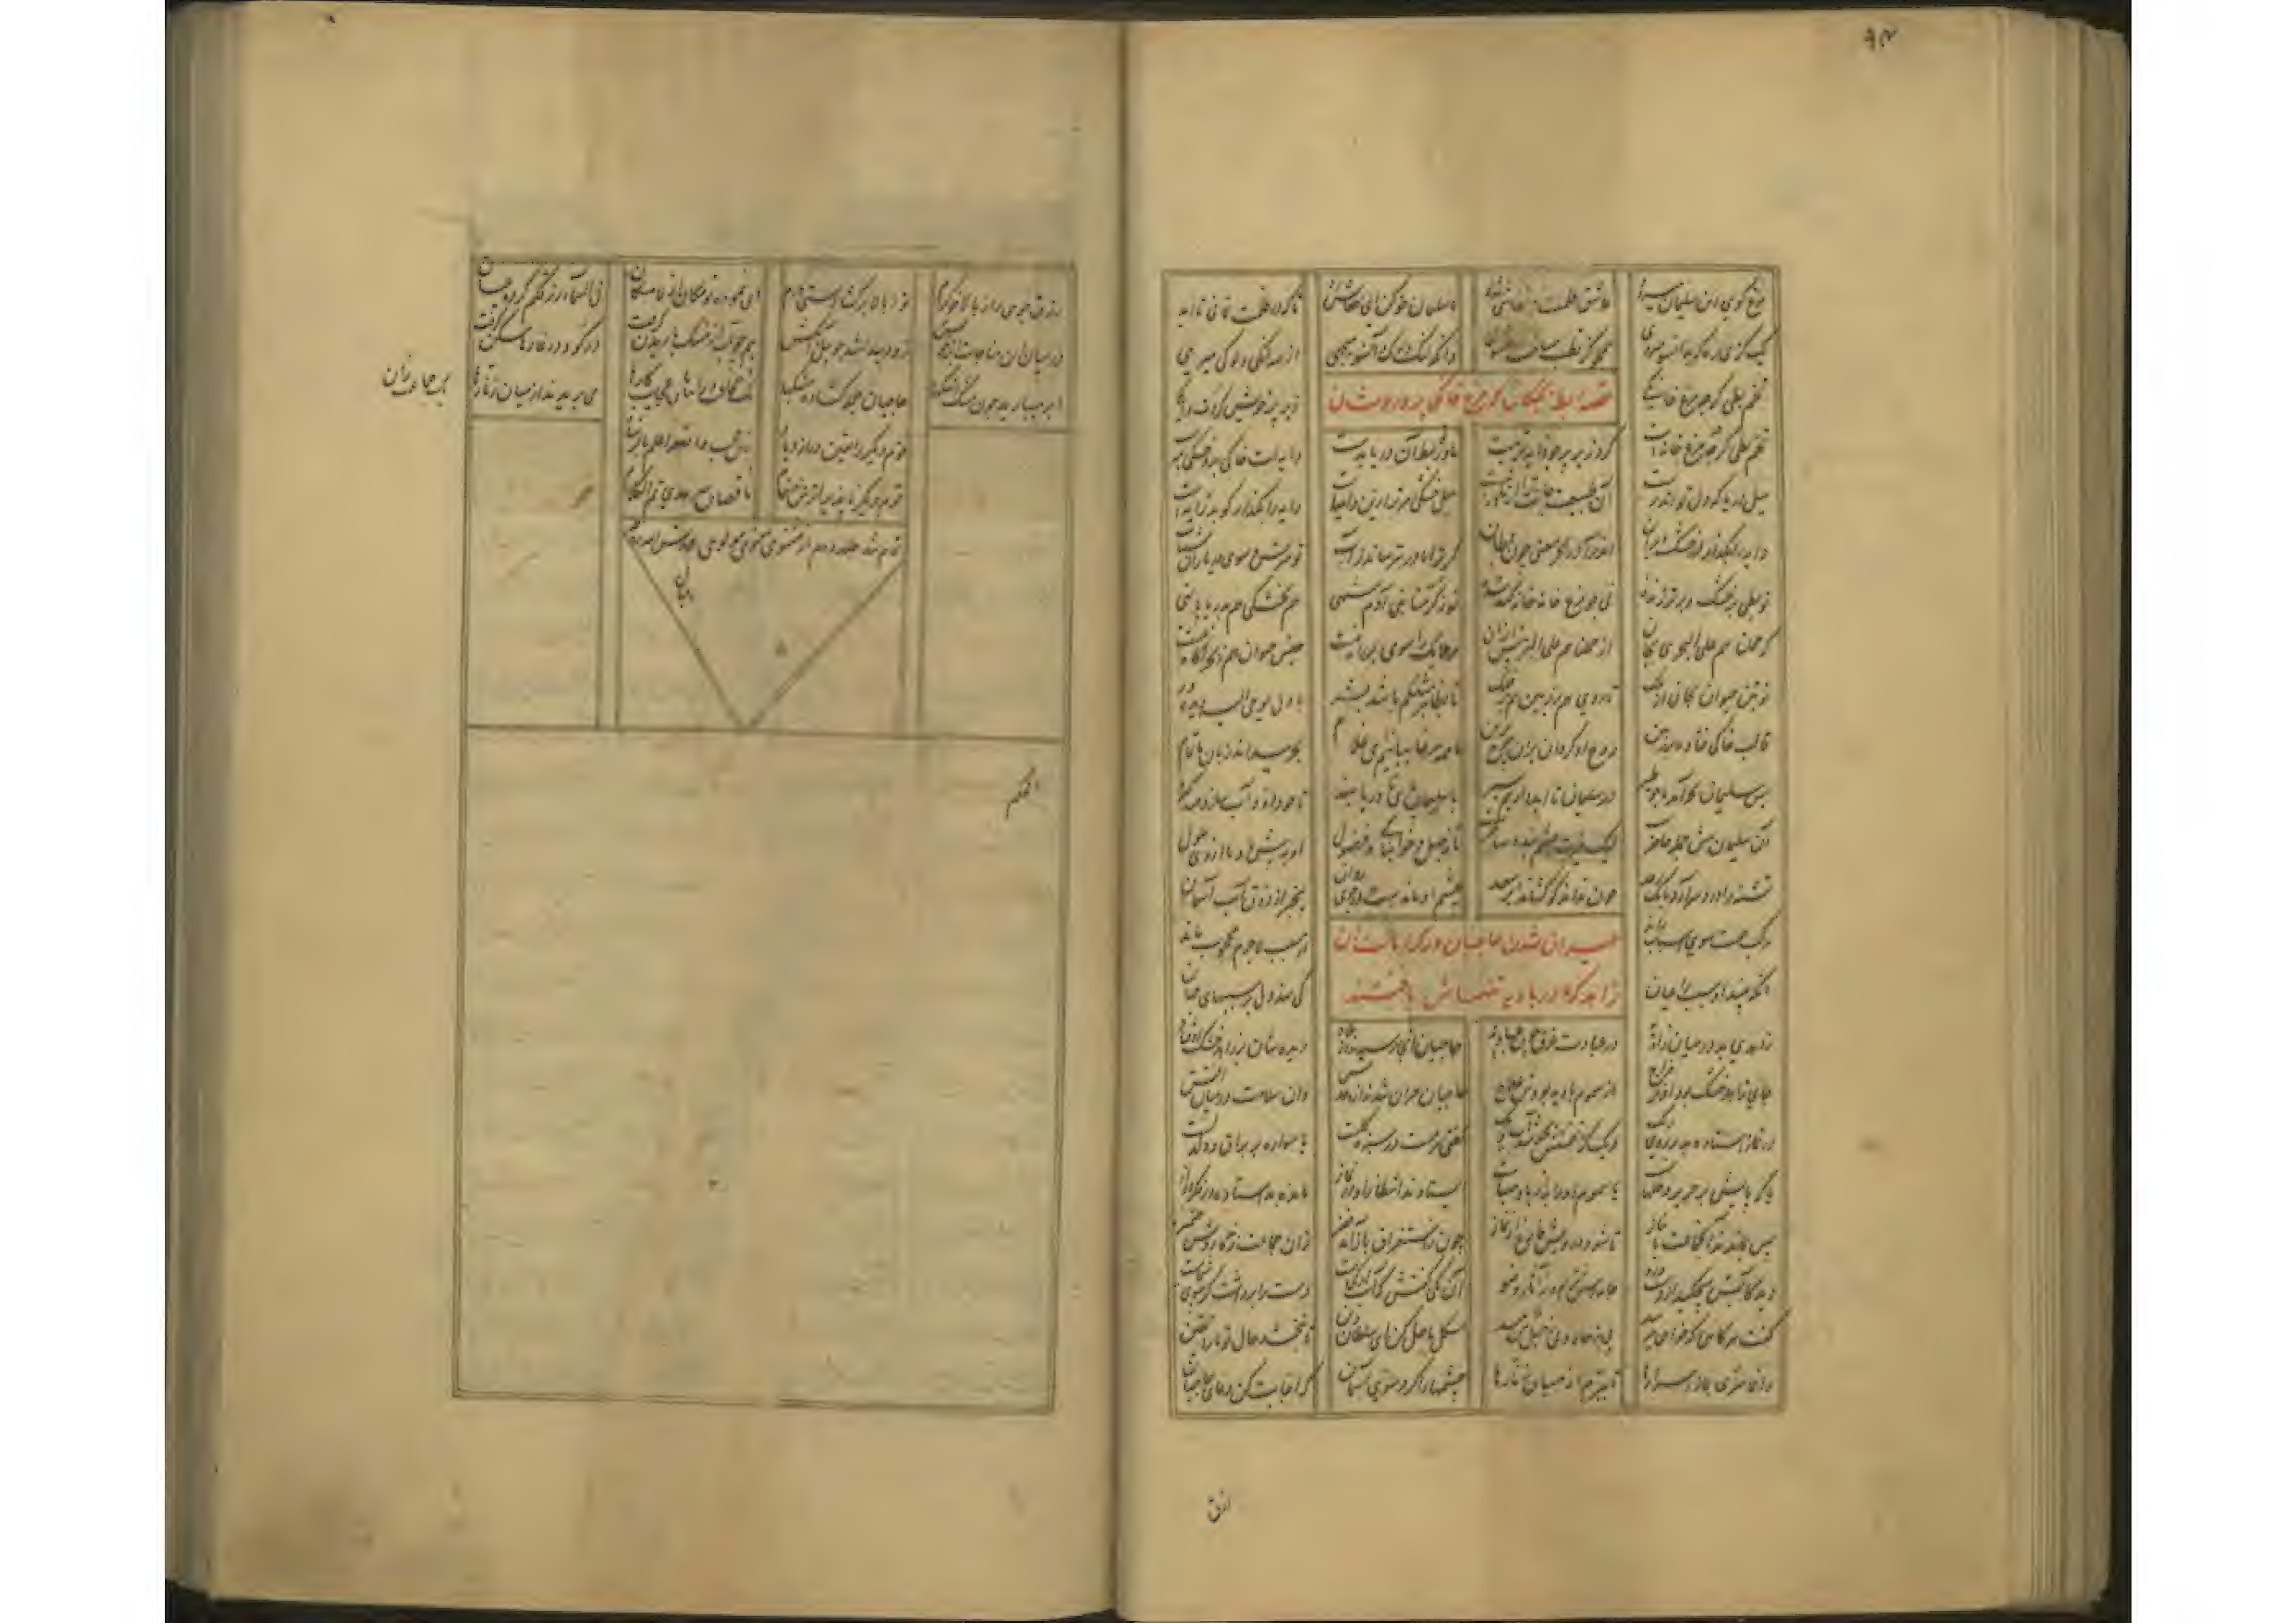 ۹۳
مرغ کو بی این سلیمان میرود عاشق ظلمت چو خفاشی بود با سلیمان خو کن ای خفاش رد تا که در ظلمت نمانی تا ابد
یک گزی ره که بدانسو میروی همچو گز قطب مساحت میشوی وانکه لنگ و لوک آنسو میجهی از همه لنگی و لوکی میرهی
قصه بط بچگان که مرغ خانگی پروردشان
تخم بطی گرچه مرغ خانگی زیر پر خویش کردت دایگی
تخم بطی گرچه مرغ خانه‌ات کرد زیر پر چو دایه تربیت مادر تو بط آن دریا بدست دایه‌ات خاکی بد و خشکی پرست
میل دریا که دل تو اندرست آن طبیعت جانت را از مادرست میل خشکی مر ترا زین دایه است دایه را بگذار کو بد رایه است
دایه را بگذار در خشک و بران اندر آ در بحر معنی چون بطان گر ترا مادر بترساند ز آب تو مترس و سوی دریا ران شتاب
تو بطی بر خشک و بر تر زنده نی چو مرغ خانه خانه کنده تو ز کرمنا بنی آدم شهی هم بخشکی هم بدریا پا نهی
که حملناهم علی البحری بجان از حملناهم علی البر پیش ران مر ملایک را سوی بر راه نیست جنس حیوان هم ز بحر آگاه نیست
تو بتن حیوان بجانی از ملک تا روی هم بر زمین هم بر فلک تا بظاهر مثلکم باشد بشر با دل یوحی الیه دیده ور
قالب خاکی فتاده بر زمین روح او گردان بران چرخ برین ما همه مرغابیانیم ای غلام بحر میداند زبان ما تمام
پس سلیمان بحر آمد ما چو طیر در سلیمان تا ابد داریم سیر با سلیمان پای در دریا بنه تا چو داود آب سازد صد زره
آن سلیمان پیش جمله حاضر لیک غیرت چشم بند و ساحر تا ز جهل و خوابناکی و فضول او به پیش ما و ما از وی ملول
تشنه را درد سر آرد بانک رعد چون نداند کو کشاند ابر سعد چشم او ماندست در جوی روان بیخبر از ذوق آب آسمان
مرکب همت سوی اسباب راند از مسبب لاجرم محجوب ماند
آنکه بیند او مسبب را عیان کی نهد دل بر سببهای جهان
حیران شدن حاجیان در کرامات آن
زاهد که در بادیه تنهاش یافتند
زاهدی بد در میان بادیه در عبادت غرق چون عبادیه حاجیان آنجا رسیدند از بلاد دیده شان بر زاهد خشک اوفتاد
جای زاهد خشک بود او تر مزاج از سموم بادیه بودش علاج حاجیان حیران شدند از وحدتش وان سلامت در میان آفتش
در نماز استاده بد بر روی ریک ریک کز تفش بجوشد آب دیک گفتی سرمست در سبزه و گلست یا سواره بر براق و دلدلست
یا که پایش بر حریر و حلهاست یا سموم او را به از باد صباست ایستادند انتظار او در نماز مانده بد استاده در فکر دراز
پس بماندند آن جماعت با نیاز تا شود درویش فارغ از نماز چون ز استغراق باز آمد فقیر زان جماعت زنده روشن ضمیر
دید کابش میچکید از دست و رو جامه‌اش تر بود ز آثار وضو دست را برداشت کز سوی سماست
گفت هر گاهی که خواهی میرسد بی ز چاه و بی ز حبل من مسد مشکل ما حل کن ای سلطان دین تا ببخشد حال تو ما را یقین
وانما سری ز اسرارها تا ببریم از میان زنارها چشمها را کرد سوی آسمان که اجابت کن دعای حاجیان
رزق
رزق جویی را ز بالا خوکرم تو ز بالا برگشادستی درم ای نموده تو مکان از لامکان فی السماء رزقکم کرده عیان
در میان این مناجات ابر خوش زود پیدا شد چو پیل آبکش همچو آب از مشک باریدن گرفت در گو و در غارها مسکن گرفت
ابر میبارید چون مشک اشکها حاجیان جمله گشاده مشکها یک جماعت زان عجایب کارها می بریدند از میان زنارها
قوم دیگر را یقین در ازدیاد زین عجب والله اعلم بالرشاد
قوم دیگر ناپذیرا ترش و خام ناقصان سرمدی تم الکلام
تمام شد جلد دوم از مثنوی معنوی مولوی